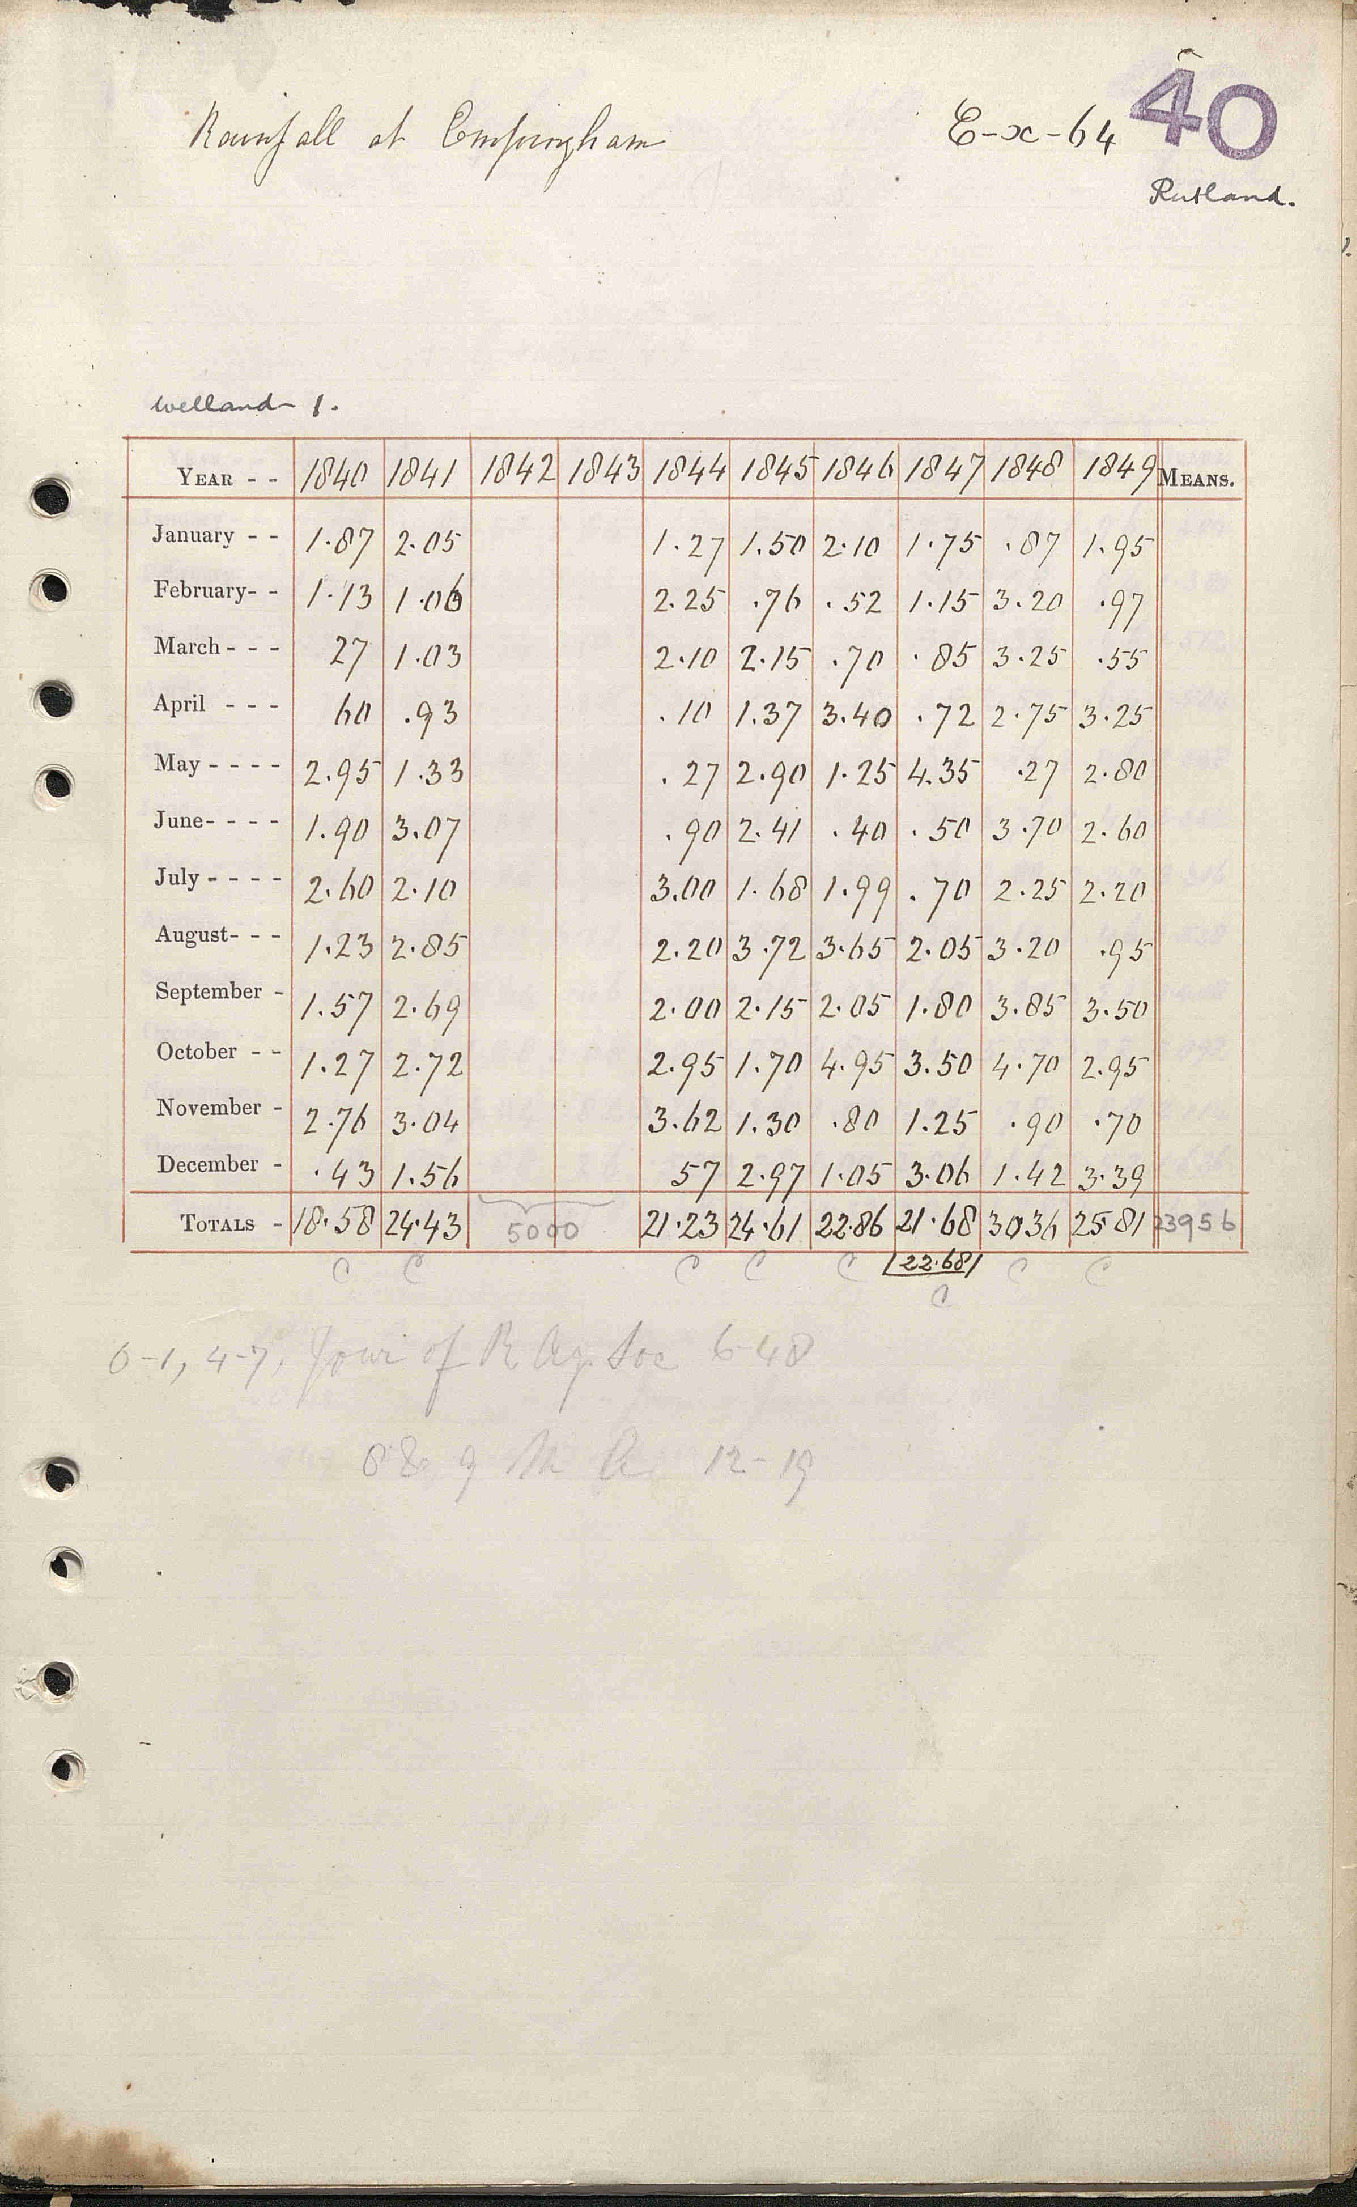 Rainfall at Empingham E-x-64 40
Rutland.
Welland 1.
YEAR - - 1840 1841 1842 1843 1844 1845 1846 1847 1848 1849 MEANS.
January - - 1.87 2.05 1.27 1.50 2.10 1.75 .87 1.95
February- - 1.13 1.06 2.25 .76 .52 1.15 3.20 .97
March - - - 27 1.03 2.10 2.15 .70 .85 3.25 .55
April - - - 60 .93 .10 1.37 3.40 .72 2.75 3.25
May - - - - 2.95 1.33 .27 2.90 1.25 4.35 .27 2.80
June- - - - 1.90 3.07 .90 2.41 .40 .50 3.70 2.60
July - - - - 2.60 2.10 3.00 1.68 1.99 .70 2.25 2.20
August- - - 1.23 2.85 2.20 3.72 3.65 2.05 3.20 .95
September - 1.57 2.69 2.00 2.15 2.05 1.80 3.85 3.50
October - - 1.27 2.72 2.95 1.70 4.95 3.50 4.70 2.95
November - 2.76 3.04 3.62 1.30 .80 1.25 .90 .70
December - .43 1.56 57 2.97 1.05 3.06 1.42 3.39
TOTALS - 18.58 24.43 5000 21.23 24.61 22.86 21.68 3036 2581 23956
C C C C C 22.68 C C
C
0-1, 4-7, Jour of R Ag. Soc 6-48
8 & 9 12-19